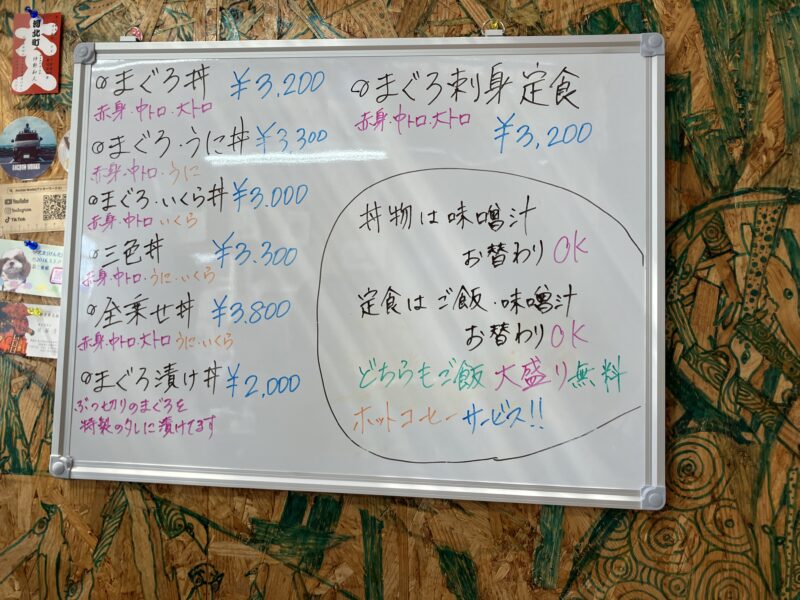 まぐろ丼 ¥3,200
赤身・中トロ・大トロ
まぐろ・うに丼 ¥3,300
赤身・中トロ・うに
まぐろ・いくら丼 ¥3,000
赤身・中トロ いくら
三色丼 ¥3,300
赤身・中トロ・うに・いくら
全乗せ丼 ¥3,800
赤身・中トロ・大トロ うに・いくら
まぐろ漬け丼 ¥2,000
ぶつ切りのまぐろを
特製のタレに漬けてます
まぐろ刺身定食
赤身・中トロ・大トロ
¥3,200
丼物は味噌汁
お替わりOK
定食はご飯・味噌汁
お替わりOK
どちらもご飯 大盛り無料
ホットコーヒーサービス!!
YouTube
Instagram
TikTok